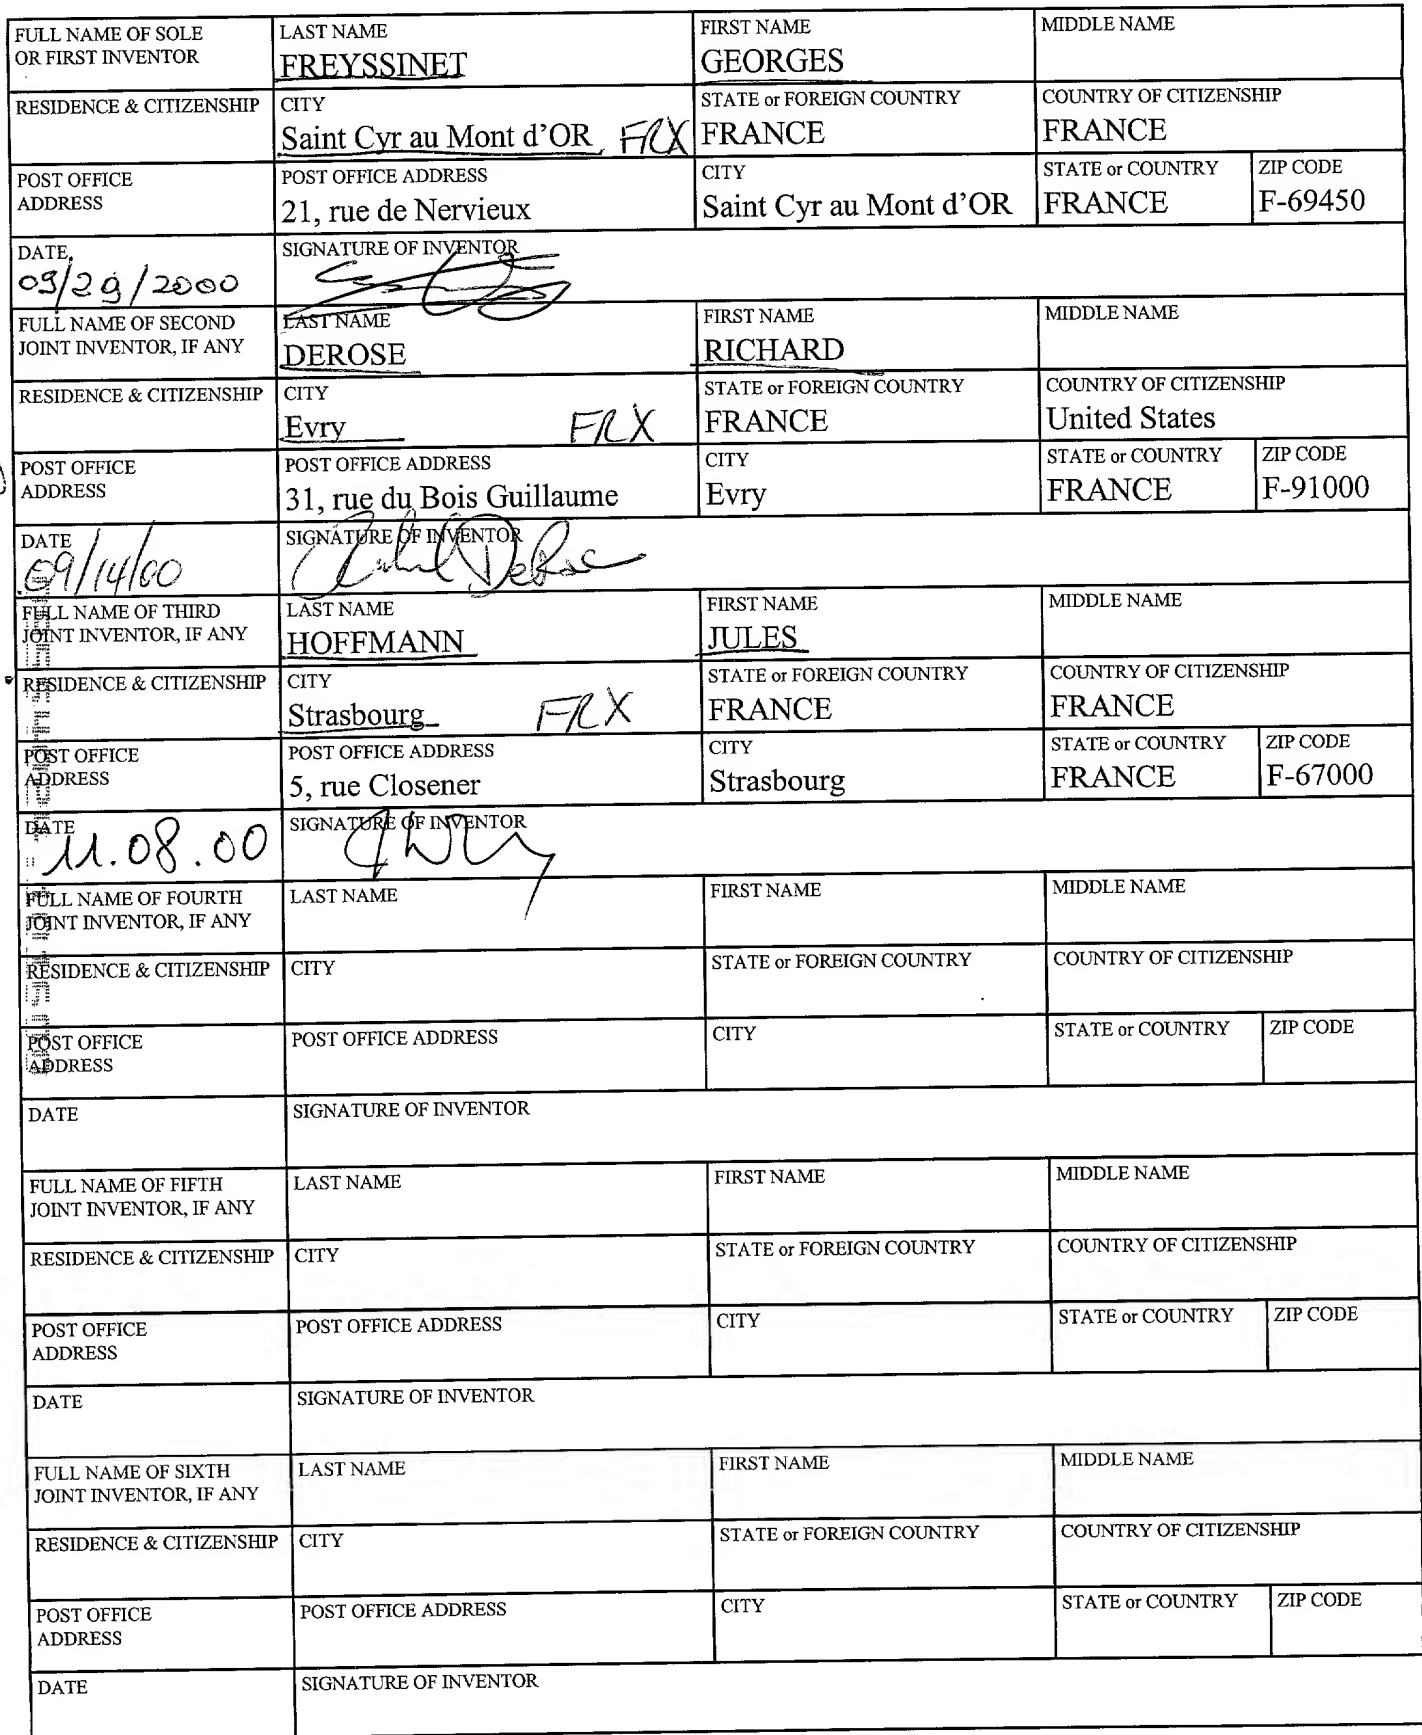 FULL NAME OF SOLE
OR FIRST INVENTOR
LAST NAME
FREYSSINET
FIRST NAME
GEORGES
MIDDLE NAME
RESIDENCE & CITIZENSHIP
CITY
Saint Cyr au Mont d'OR FRX
STATE or FOREIGN COUNTRY
FRANCE
COUNTRY OF CITIZENSHIP
FRANCE
POST OFFICE
ADDRESS
POST OFFICE ADDRESS
21, rue de Nervieux
CITY
Saint Cyr au Mont d'OR
STATE or COUNTRY
FRANCE
ZIP CODE
F-69450
DATE
09/29/2000
SIGNATURE OF INVENTOR
FULL NAME OF SECOND
JOINT INVENTOR, IF ANY
LAST NAME
DEROSE
FIRST NAME
RICHARD
MIDDLE NAME
RESIDENCE & CITIZENSHIP
CITY
Evry FRX
STATE or FOREIGN COUNTRY
FRANCE
COUNTRY OF CITIZENSHIP
United States
POST OFFICE
ADDRESS
POST OFFICE ADDRESS
31, rue du Bois Guillaume
CITY
Evry
STATE or COUNTRY
FRANCE
ZIP CODE
F-91000
DATE
09/14/00
SIGNATURE OF INVENTOR
Richard DeRose
FULL NAME OF THIRD
JOINT INVENTOR, IF ANY
LAST NAME
HOFFMANN
FIRST NAME
JULES
MIDDLE NAME
RESIDENCE & CITIZENSHIP
CITY
Strasbourg FRX
STATE or FOREIGN COUNTRY
FRANCE
COUNTRY OF CITIZENSHIP
FRANCE
POST OFFICE
ADDRESS
POST OFFICE ADDRESS
5, rue Closener
CITY
Strasbourg
STATE or COUNTRY
FRANCE
ZIP CODE
F-67000
DATE
11.08.00
SIGNATURE OF INVENTOR
FULL NAME OF FOURTH
JOINT INVENTOR, IF ANY
LAST NAME
FIRST NAME
MIDDLE NAME
RESIDENCE & CITIZENSHIP
CITY
STATE or FOREIGN COUNTRY
COUNTRY OF CITIZENSHIP
POST OFFICE
ADDRESS
POST OFFICE ADDRESS
CITY
STATE or COUNTRY
ZIP CODE
DATE
SIGNATURE OF INVENTOR
FULL NAME OF FIFTH
JOINT INVENTOR, IF ANY
LAST NAME
FIRST NAME
MIDDLE NAME
RESIDENCE & CITIZENSHIP
CITY
STATE or FOREIGN COUNTRY
COUNTRY OF CITIZENSHIP
POST OFFICE
ADDRESS
POST OFFICE ADDRESS
CITY
STATE or COUNTRY
ZIP CODE
DATE
SIGNATURE OF INVENTOR
FULL NAME OF SIXTH
JOINT INVENTOR, IF ANY
LAST NAME
FIRST NAME
MIDDLE NAME
RESIDENCE & CITIZENSHIP
CITY
STATE or FOREIGN COUNTRY
COUNTRY OF CITIZENSHIP
POST OFFICE
ADDRESS
POST OFFICE ADDRESS
CITY
STATE or COUNTRY
ZIP CODE
DATE
SIGNATURE OF INVENTOR